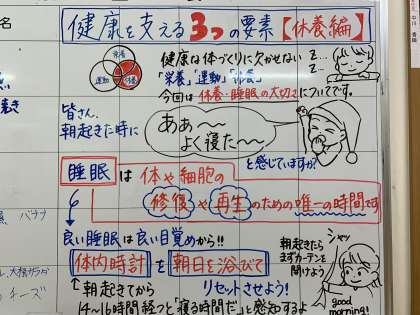 名
健康を支える3つの要素【休養編】
栄養
運動
休養
健康な体づくりに欠かせない
「栄養」「運動」「休養」
今回は休養・睡眠の大切さについてです。
Z…
Z…
皆さん、
朝起きた時に
ああ〜
よく寝た〜
と感じていますか?
睡眠は体や細胞の
修復や再生のための唯一の時間です
良い睡眠は良い目覚めから!!
体内時計を朝日を浴びて
リセットさせよう!
↑朝起きてから
14〜16時間経つと「寝る時間だ」と感知するよ
朝起きたら
まずカーテンを
開けよう
シャッ
good
morning!
バナナ
チーズ